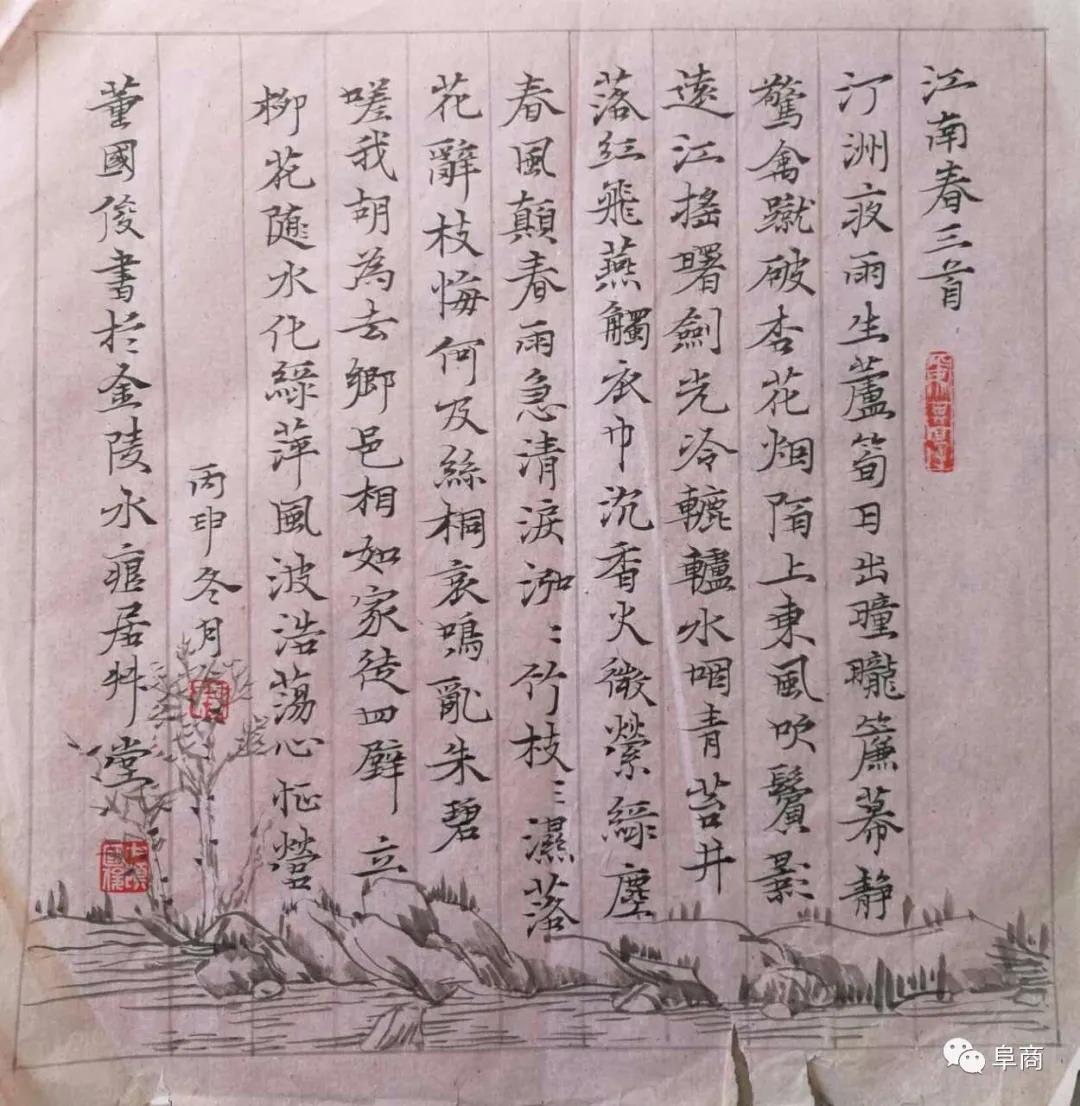 江南春三首
汀洲夜雨生蘆筍日出曈曨簾幕静
驚禽蹴破杏花烟陌上東風吹鬢影
遠江搖曙劍光冷轆轤水咽青苔井
落红飛燕觸衣巾沉香火微縈綠塵
春風顛春雨急清淚泓〻竹枝〻濕落
花辭枝悔何及絲桐哀鳴亂朱碧
嗟我胡為去鄉邑相如家徒四壁立
柳花随水化綠萍風波浩蕩心怔營
丙申冬月
董國俊書於金陵水痕居艸堂
阜商